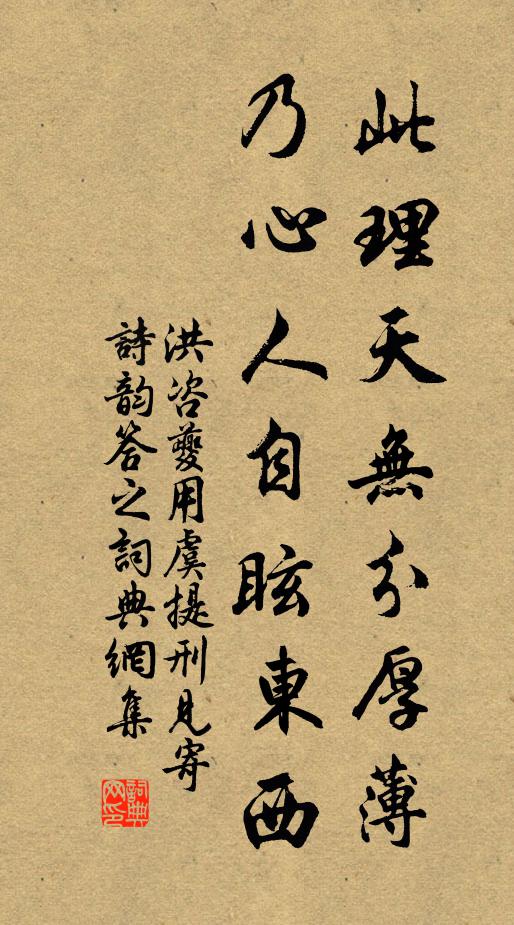 此理天無分厚薄
乃心人自眩東西
洪咨夔用虞提刑見寄
詩韵答之詞典網集
詞典
网印